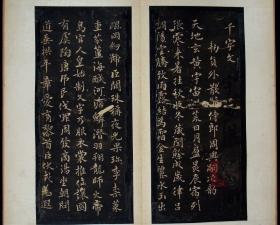 千字文
勅員外散騎侍郎周興嗣次韵
天地玄黃宇宙洪荒日月盈昃辰宿列
張寒來暑往秋收冬藏閏餘成歲律呂
調陽雲騰致雨露結為霜金生麗水玉出
崑岡劍號巨闕珠稱夜光果珍李柰菜
重芥薑海鹹河淡鱗潛羽翔龍師火帝
鳥官人皇始制文字乃服衣裳推位讓國
有虞陶唐弔民伐罪周發商湯坐朝問
道垂拱平章愛育黎首臣伏戎羌遐